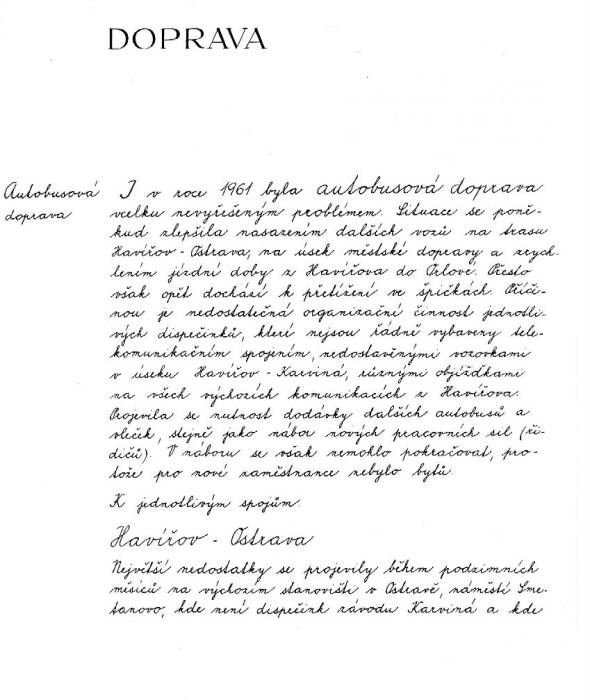 DOPRAVA
Autobusová
doprava
I v roce 1961 byla autobusová doprava
vcelku nevyřešeným problémem. Situace se poně-
kud zlepšila nasazením dalších vozů na trasu
Havířov - Ostrava, na úsek městské dopravy a zrych-
lením jízdní doby z Havířova do Orlové. Přesto
však opět dochází k přetížení ve špičkách. Příči-
nou je nedostatečná organizační činnost jednotli-
vých dispečinků, které nejsou řádně vybaveny tele-
komunikačním spojením, nedostavěnými vozovkami
v úseku Havířov - Karviná, různými objížďkami
na všech výchozích komunikacích z Havířova.
Projevila se nutnost dodávky dalších autobusů a
vleček, stejně jako nábor nových pracovních sil (ři-
dičů). V náboru se však nemohlo pokračovat, pro-
tože pro nové zaměstnance nebylo bytů.
K jednotlivým spojům.
Havířov - Ostrava
Největší nedostatky se projevily během podzimních
měsíců na výchozím stanovišti v Ostravě, náměstí Sme-
tanovo, kde není dispečink závodu Karviná a kde